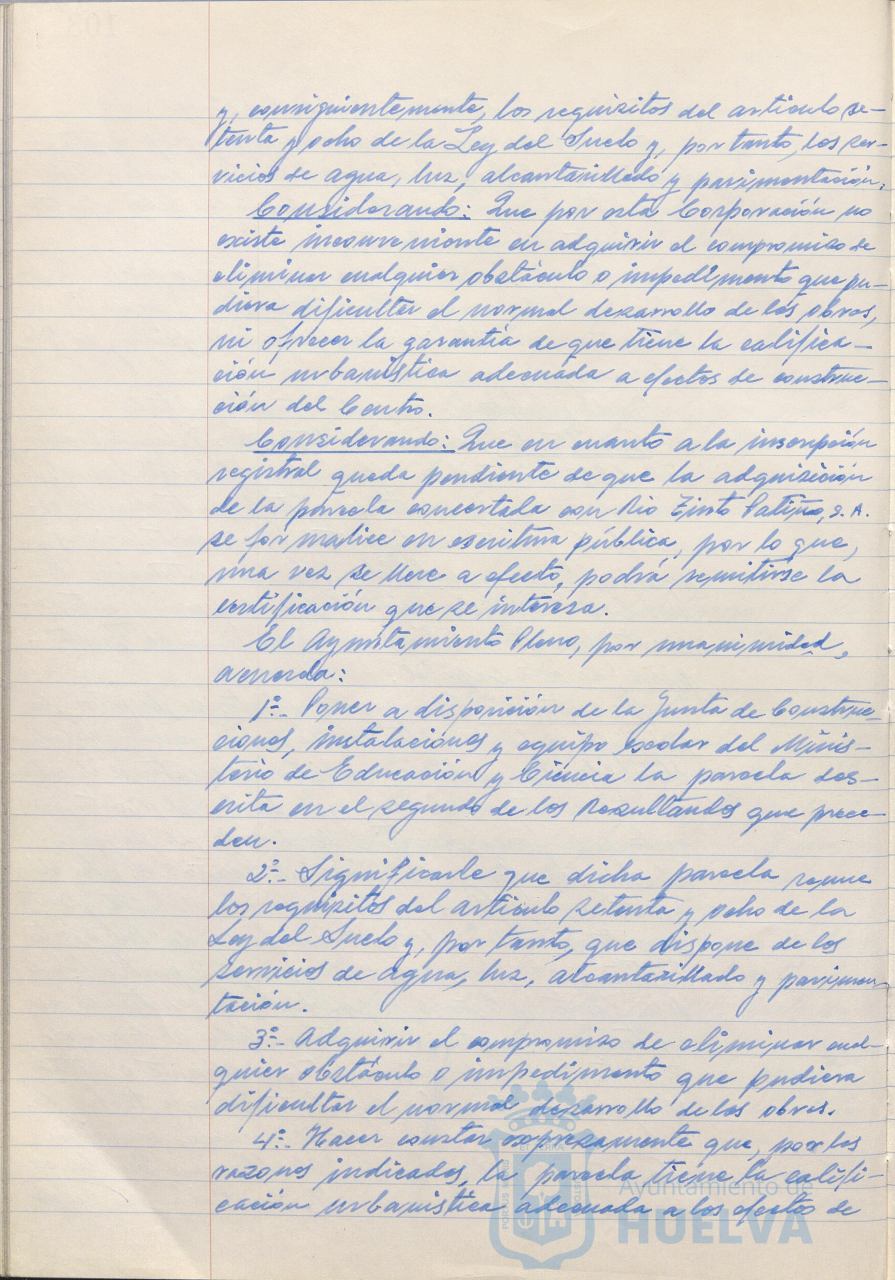 y, consiguientemente, los requisitos del artículo se-
tenta y ocho de la Ley del Suelo y, por tanto, los ser-
vicios de agua, luz, alcantarillado y pavimentación.
Considerando: Que por esta Corporación no
existe inconveniente en adquirir el compromiso de
eliminar cualquier obstáculo o impedimento que pu-
diera dificultar el normal desarrollo de las obras,
ni ofrecer la garantía de que tiene la califica-
ción urbanística adecuada a efectos de construc-
ción del Centro.
Considerando: Que en cuanto a la inscripción
registral queda pendiente de que la adquisición
de la parcela concertada con Rio Tinto Patiño, S.A.
se formalice en escritura pública, por lo que,
una vez se lleve a efecto, podrá remitirse la
certificación que se interesa.
El Ayuntamiento Pleno, por unanimidad,
acuerda:
1º.- Poner a disposición de la Junta de Construc-
ciones, instalaciones y equipo escolar del Minis-
terio de Educación y Ciencia la parcela des-
crita en el segundo de los Resultandos que prece-
den.
2º.- Significarle que dicha parcela reune
los requisitos del artículo setenta y ocho de la
Ley del Suelo y, por tanto, que dispone de los
servicios de agua, luz, alcantarillado y pavimen-
tación.
3º.- Adquirir el compromiso de eliminar cual-
quier obstáculo o impedimento que pudiera
dificultar el normal desarrollo de las obras.
4º.- Hacer constar expresamente que, por las
razones indicadas, la parcela tiene la califi-
cación urbanística adecuada a los efectos de
Ayuntamiento de
HUELVA